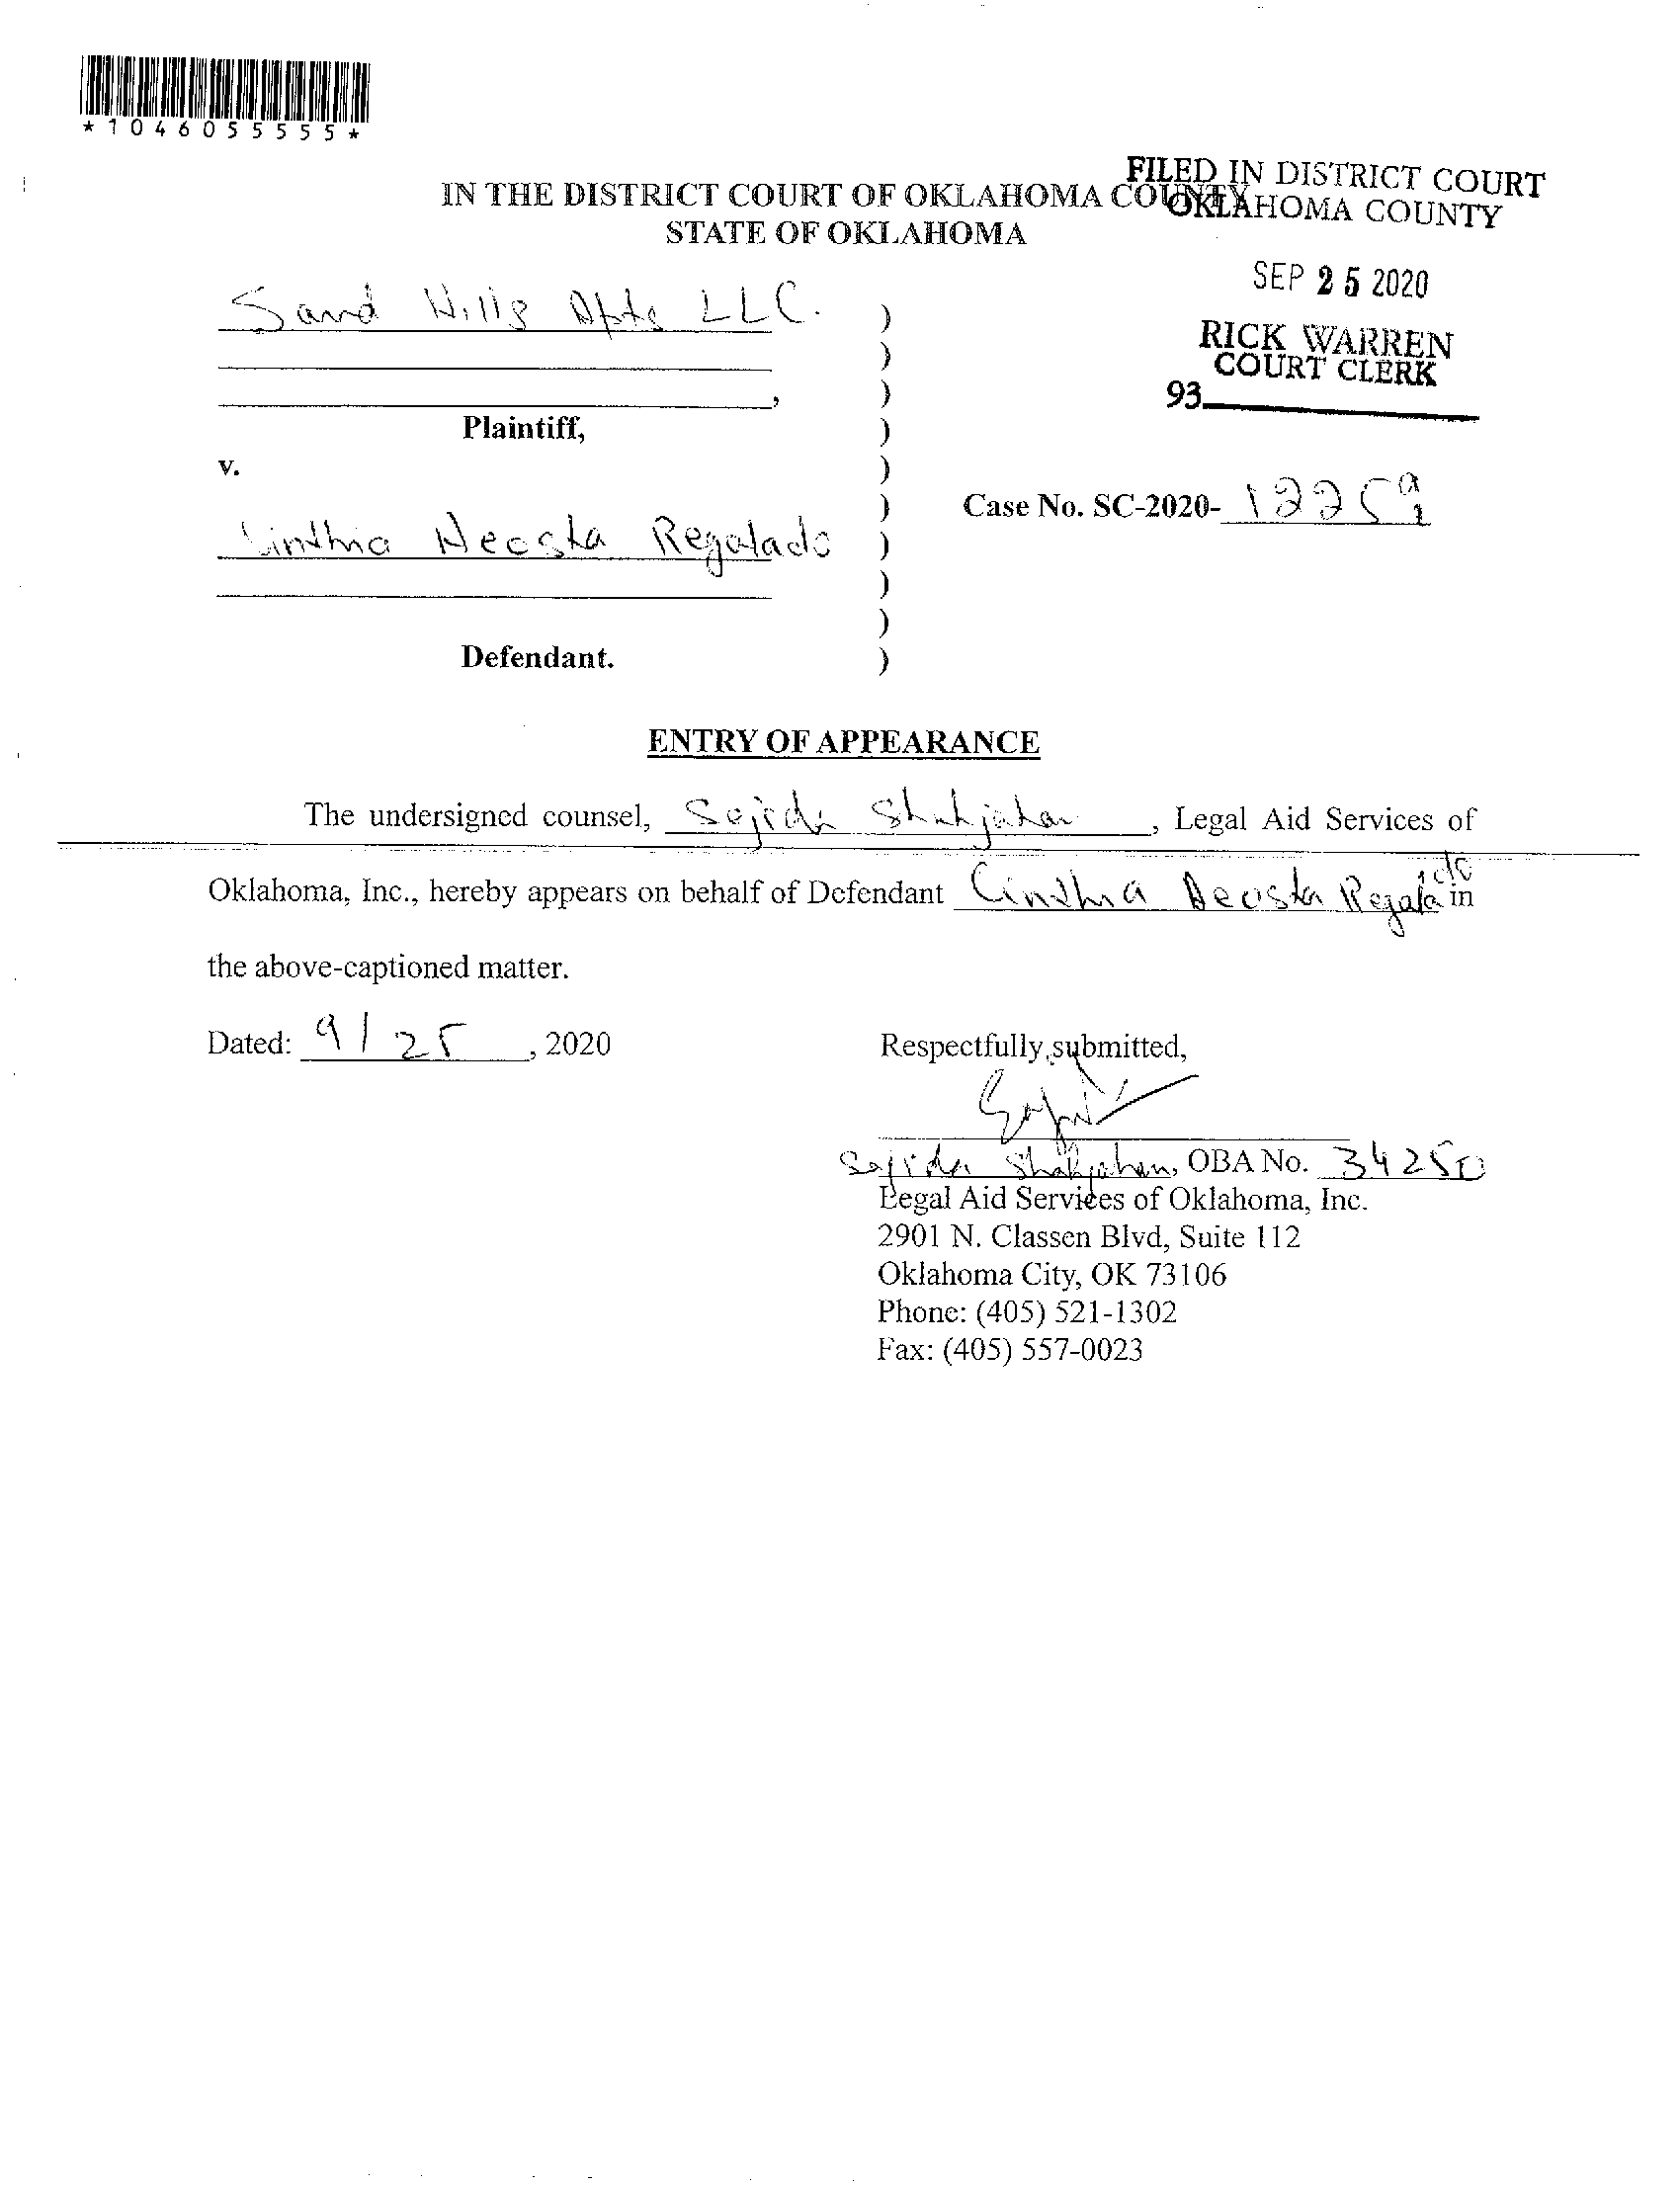 *1046055555*
FILED IN DISTRICT COURT
OKLAHOMA COUNTY
IN THE DISTRICT COURT OF OKLAHOMA COUNTY
STATE OF OKLAHOMA
SEP 25 2020
RICK WARREN
COURT CLERK
93
Sand Hills Apts LLC.
)
)
, )
Plaintiff, )
v. )
) Case No. SC-2020- 12259
Cinthia Acosta Regalado )
)
)
Defendant. )
ENTRY OF APPEARANCE
The undersigned counsel, Sajida Shahjahan, Legal Aid Services of
Oklahoma, Inc., hereby appears on behalf of Defendant Cinthia Acosta Regalado in
the above-captioned matter.
Dated: 9/25, 2020
Respectfully submitted,
Sajida Shahjahan, OBA No. 34250
Legal Aid Services of Oklahoma, Inc.
2901 N. Classen Blvd, Suite 112
Oklahoma City, OK 73106
Phone: (405) 521-1302
Fax: (405) 557-0023